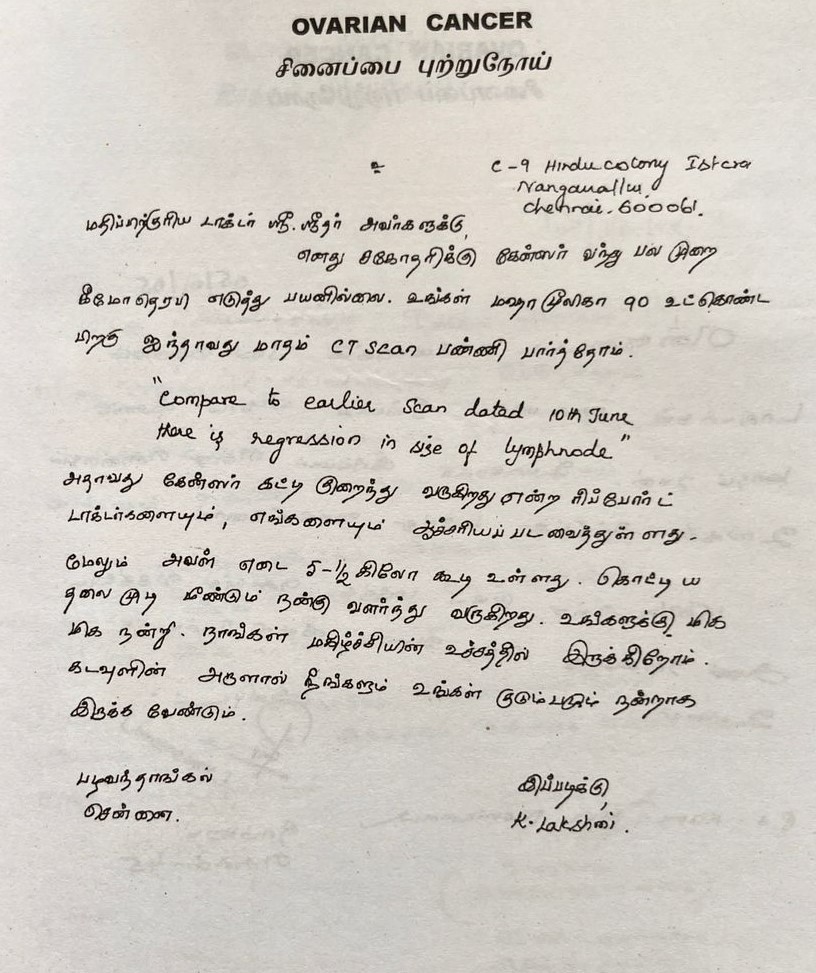 OVARIAN CANCER
சினைப்பை புற்றுநோய்
உ
C-9 Hindu colony Ist cra
Nanganallur,
Chennai-600061.
மதிப்பிற்குரிய டாக்டர் ஸ்ரீ. ஸ்ரீதர் அவர்களுக்கு,
எனது சகோதரிக்கு கேன்ஸர் வந்து பல முறை
கீமோதெரபி எடுத்து பயனில்லை. உங்கள் மஹா மூலிகா 90 உட்கொண்ட
பிறகு ஐந்தாவது மாதம் CT Scan பண்ணி பார்த்தோம்.
"Compare to earlier Scan dated 10th June
there is regression in size of lymphnode"
அதாவது கேன்ஸர் கட்டி குறைந்து வருகிறது என்ற ரிப்போர்ட்
டாக்டர்களையும், எங்களையும் ஆச்சரியப் படவைத்துள்ளது.
மேலும் அவள் எடை 5-1/2 கிலோ கூடி உள்ளது. கொட்டிய
தலை முடி மீண்டும் நன்கு வளர்ந்து வருகிறது. உங்களுக்கு மிக
மிக நன்றி. நாங்கள் மகிழ்ச்சியின் உச்சத்தில் இருக்கிறோம்.
கடவுளின் அருளால் நீங்களும் உங்கள் குடும்பமும் நன்றாக
இருக்க வேண்டும்.
பழவந்தாங்கல்
சென்னை.
இப்படிக்கு,
K. Lakshmi.